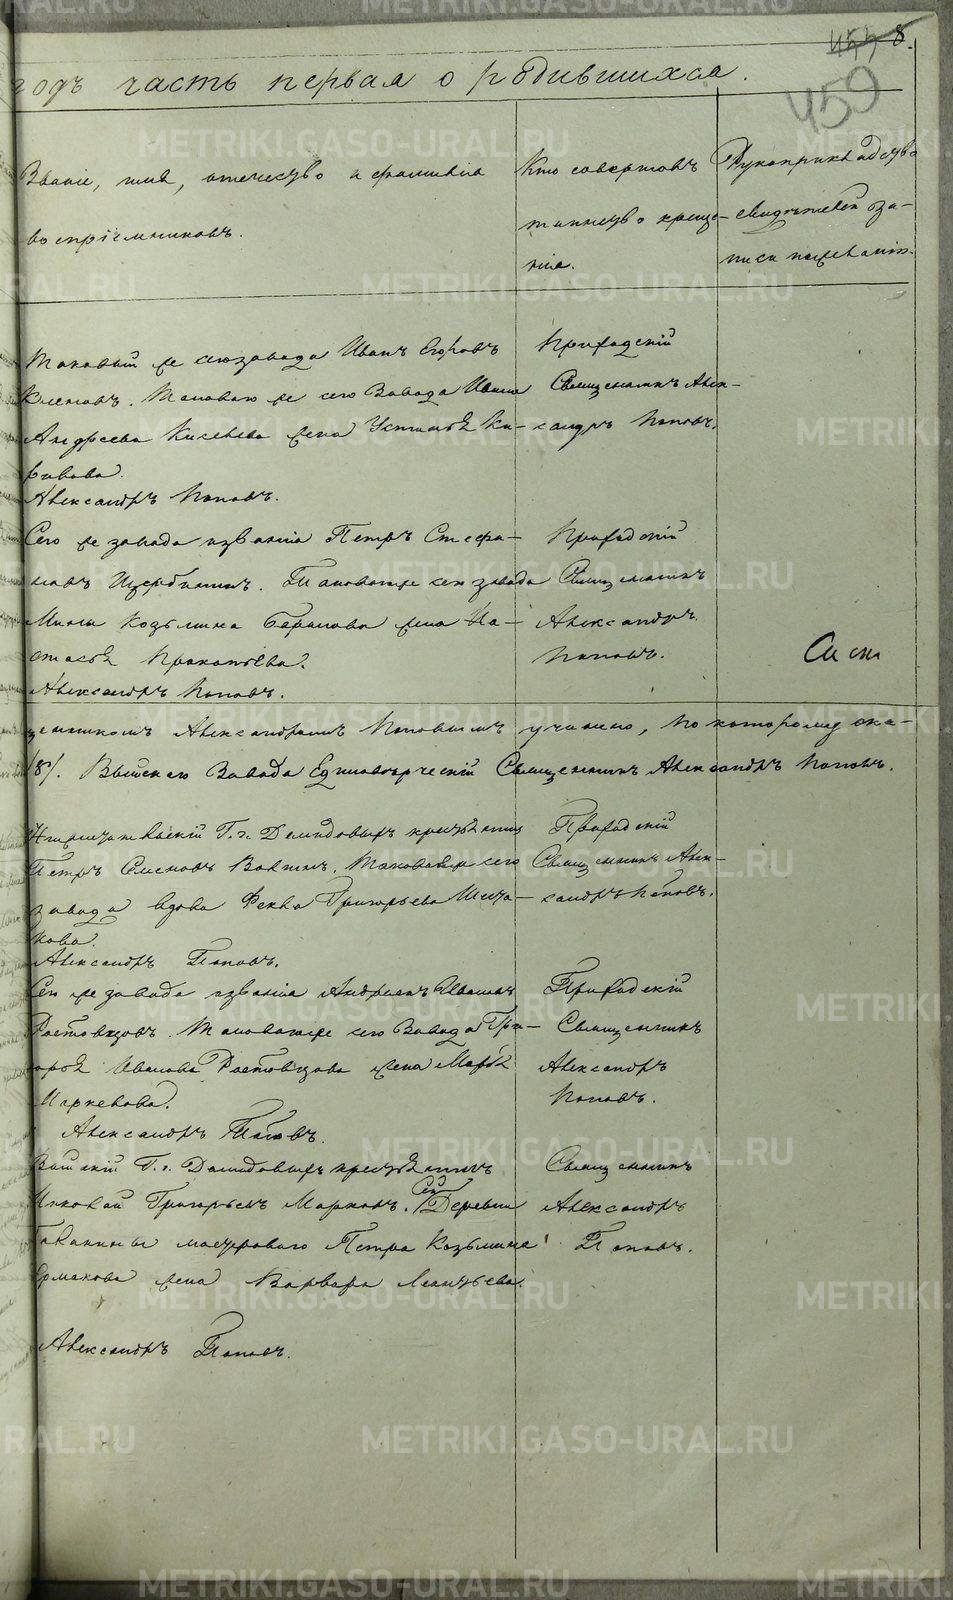 8.
459
годъ часть первая о родившихся.
Званіе, имя, отечество и фамилія
воспріемниковъ.
Кто совершалъ
таинство креще-
нія.
Рукоприкладство
свидѣтелей за-
писи по желанію.
Таковый же сего завода Иванъ Егоровъ
Клетовъ. Таковаго же сего Завода Ивана
Андреева Киселева жена Устинья Ки-
рилова.
Александръ Поповъ.
Приходскій
Священникъ Алек-
сандръ Поповъ.
Сего же завода званія Петръ Стефа-
новъ Щербининъ. Таковаго же сего завода
Козьмина Баранова жена На-
стасья Прокопьева.
Александръ Поповъ.
Приходскій
Священникъ
Александръ
Поповъ.
Си сти
щенникомъ Александромъ Поповымъ учинено, по которому ока-
/8/. Выйскаго Завода Единовѣрческій Священникъ Александръ Поповъ.
Нижнетагильскій Г.г. Демидовыхъ крестьянинъ
Петръ Семеновъ. Таковаго же сего
завода вдова Фекла Григорьева
Александръ Поповъ.
Приходскій
Священникъ Алек-
сандръ Поповъ.
Сего же завода званія Андреянъ Ивановъ
Ростовцовъ. Таковаго же сего Завода Гри-
горья Иванова Ростовцова жена Марья
Маркелова.
Александръ Поповъ.
Приходскій
Священникъ
Александръ
Поповъ.
Г.г. Демидовыхъ крестьянинъ
Николай Григорьевъ Марковъ. Сей Деревни
мастероваго Петра Козьмина
Ермакова жена Варвара Леонтьева.
Александръ Поповъ.
Священникъ
Александръ
Поповъ.
METRIKI.GASO-URAL.RU